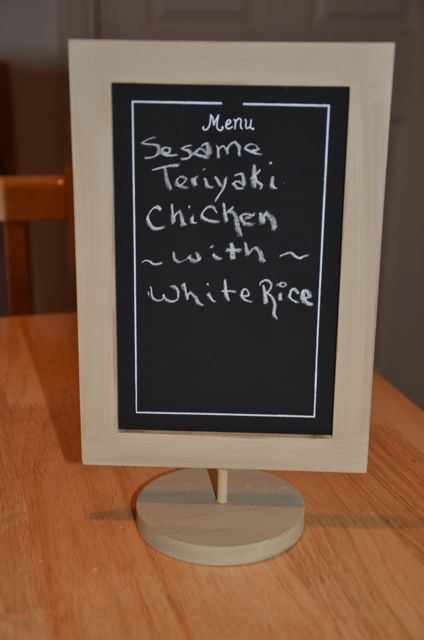 Menu
Sesame
Teriyaki
Chicken
~ with ~
White Rice